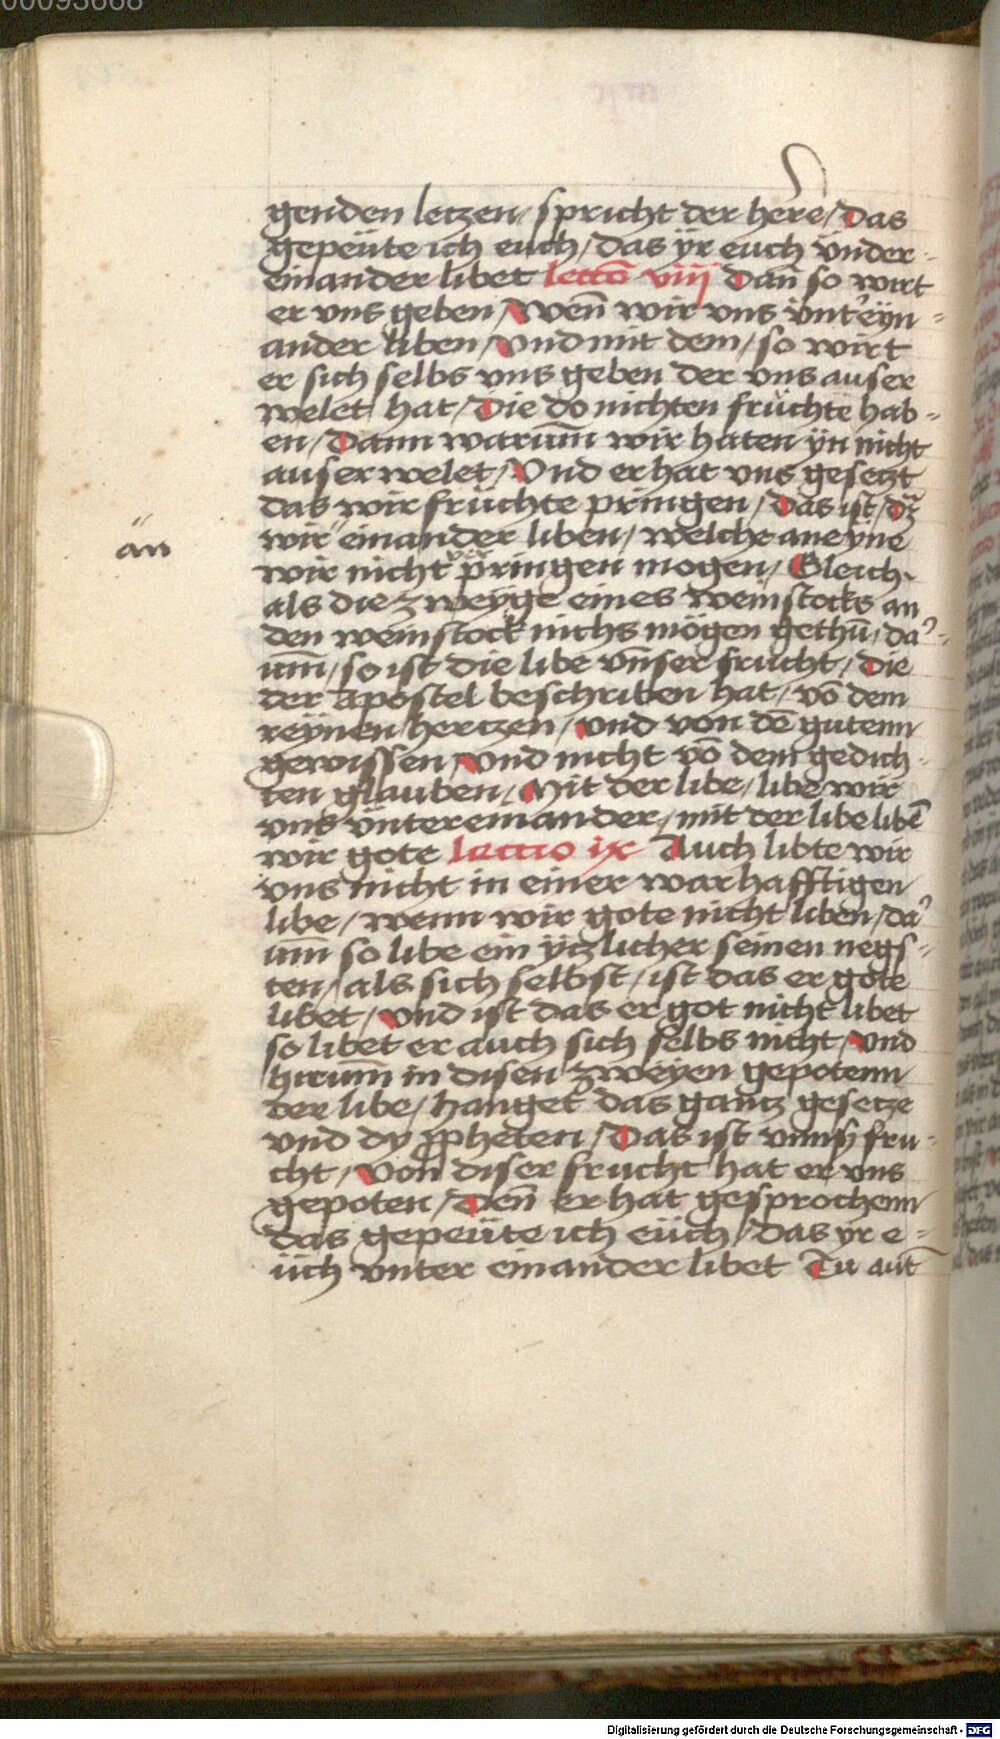 00093668
genden letzen / spricht der here / Das
gepeüte ich euch / das ÿr euch ünder-
einander libet lectō viij Dan̄ so wirt
er vns geben / Wen̄ wir vns vnt'eÿn=
ander liben / vnd mit dem / so wirt
er sich selbs vns geben der vns auser
welet hat / Die do nichten früchte hab=
en / Dann warum̄ wir haten ÿn nicht
auserwelet / Vnd er hat vns gesetzt
das wir früchte pringen / Das ist / Dz
än
wir einander liben / welche an eyne
wir nicht pringen mogen / Gleich
als die zweyge eines weinstocks an
den weinstock nichs mögen gethū / da'=
um̄ / so ist die libe vnser frucht / Die
der apostel beschriben hat / vō dem
reÿnen hertzen / vnd von dē gutenn
gewissen / vnd nicht vō dem gedich-
ten glauben / Mit der libe / libe wir
vns vntereinander / mit der libe libē
wir gote Lectio ix Auch libte wir
vns nicht in einer warhafftigen
libe / wenn wir gote nicht liben / da'
um̄ so libe ein ÿtzlicher seinen negs=
ten / als sich selbst / ist das er gote
libet / vnd ist das er got nicht libet
so libet er auch sich selbs nicht / vnd
hirum̄ in disen zweyen gepotenn
der libe / hanget das gantz gesetze
vnd dy ꝓpheten / Das ist vnnß fru-
cht / Von diser frucht hat er vns
gepoten / Den̄ er hat gesprochenn
das gepeüte ich eüch / das yr e=
üch vnter einander libet Tu aut̄
Digitalisierung gefördert durch die Deutsche Forschungsgemeinschaft - DFG